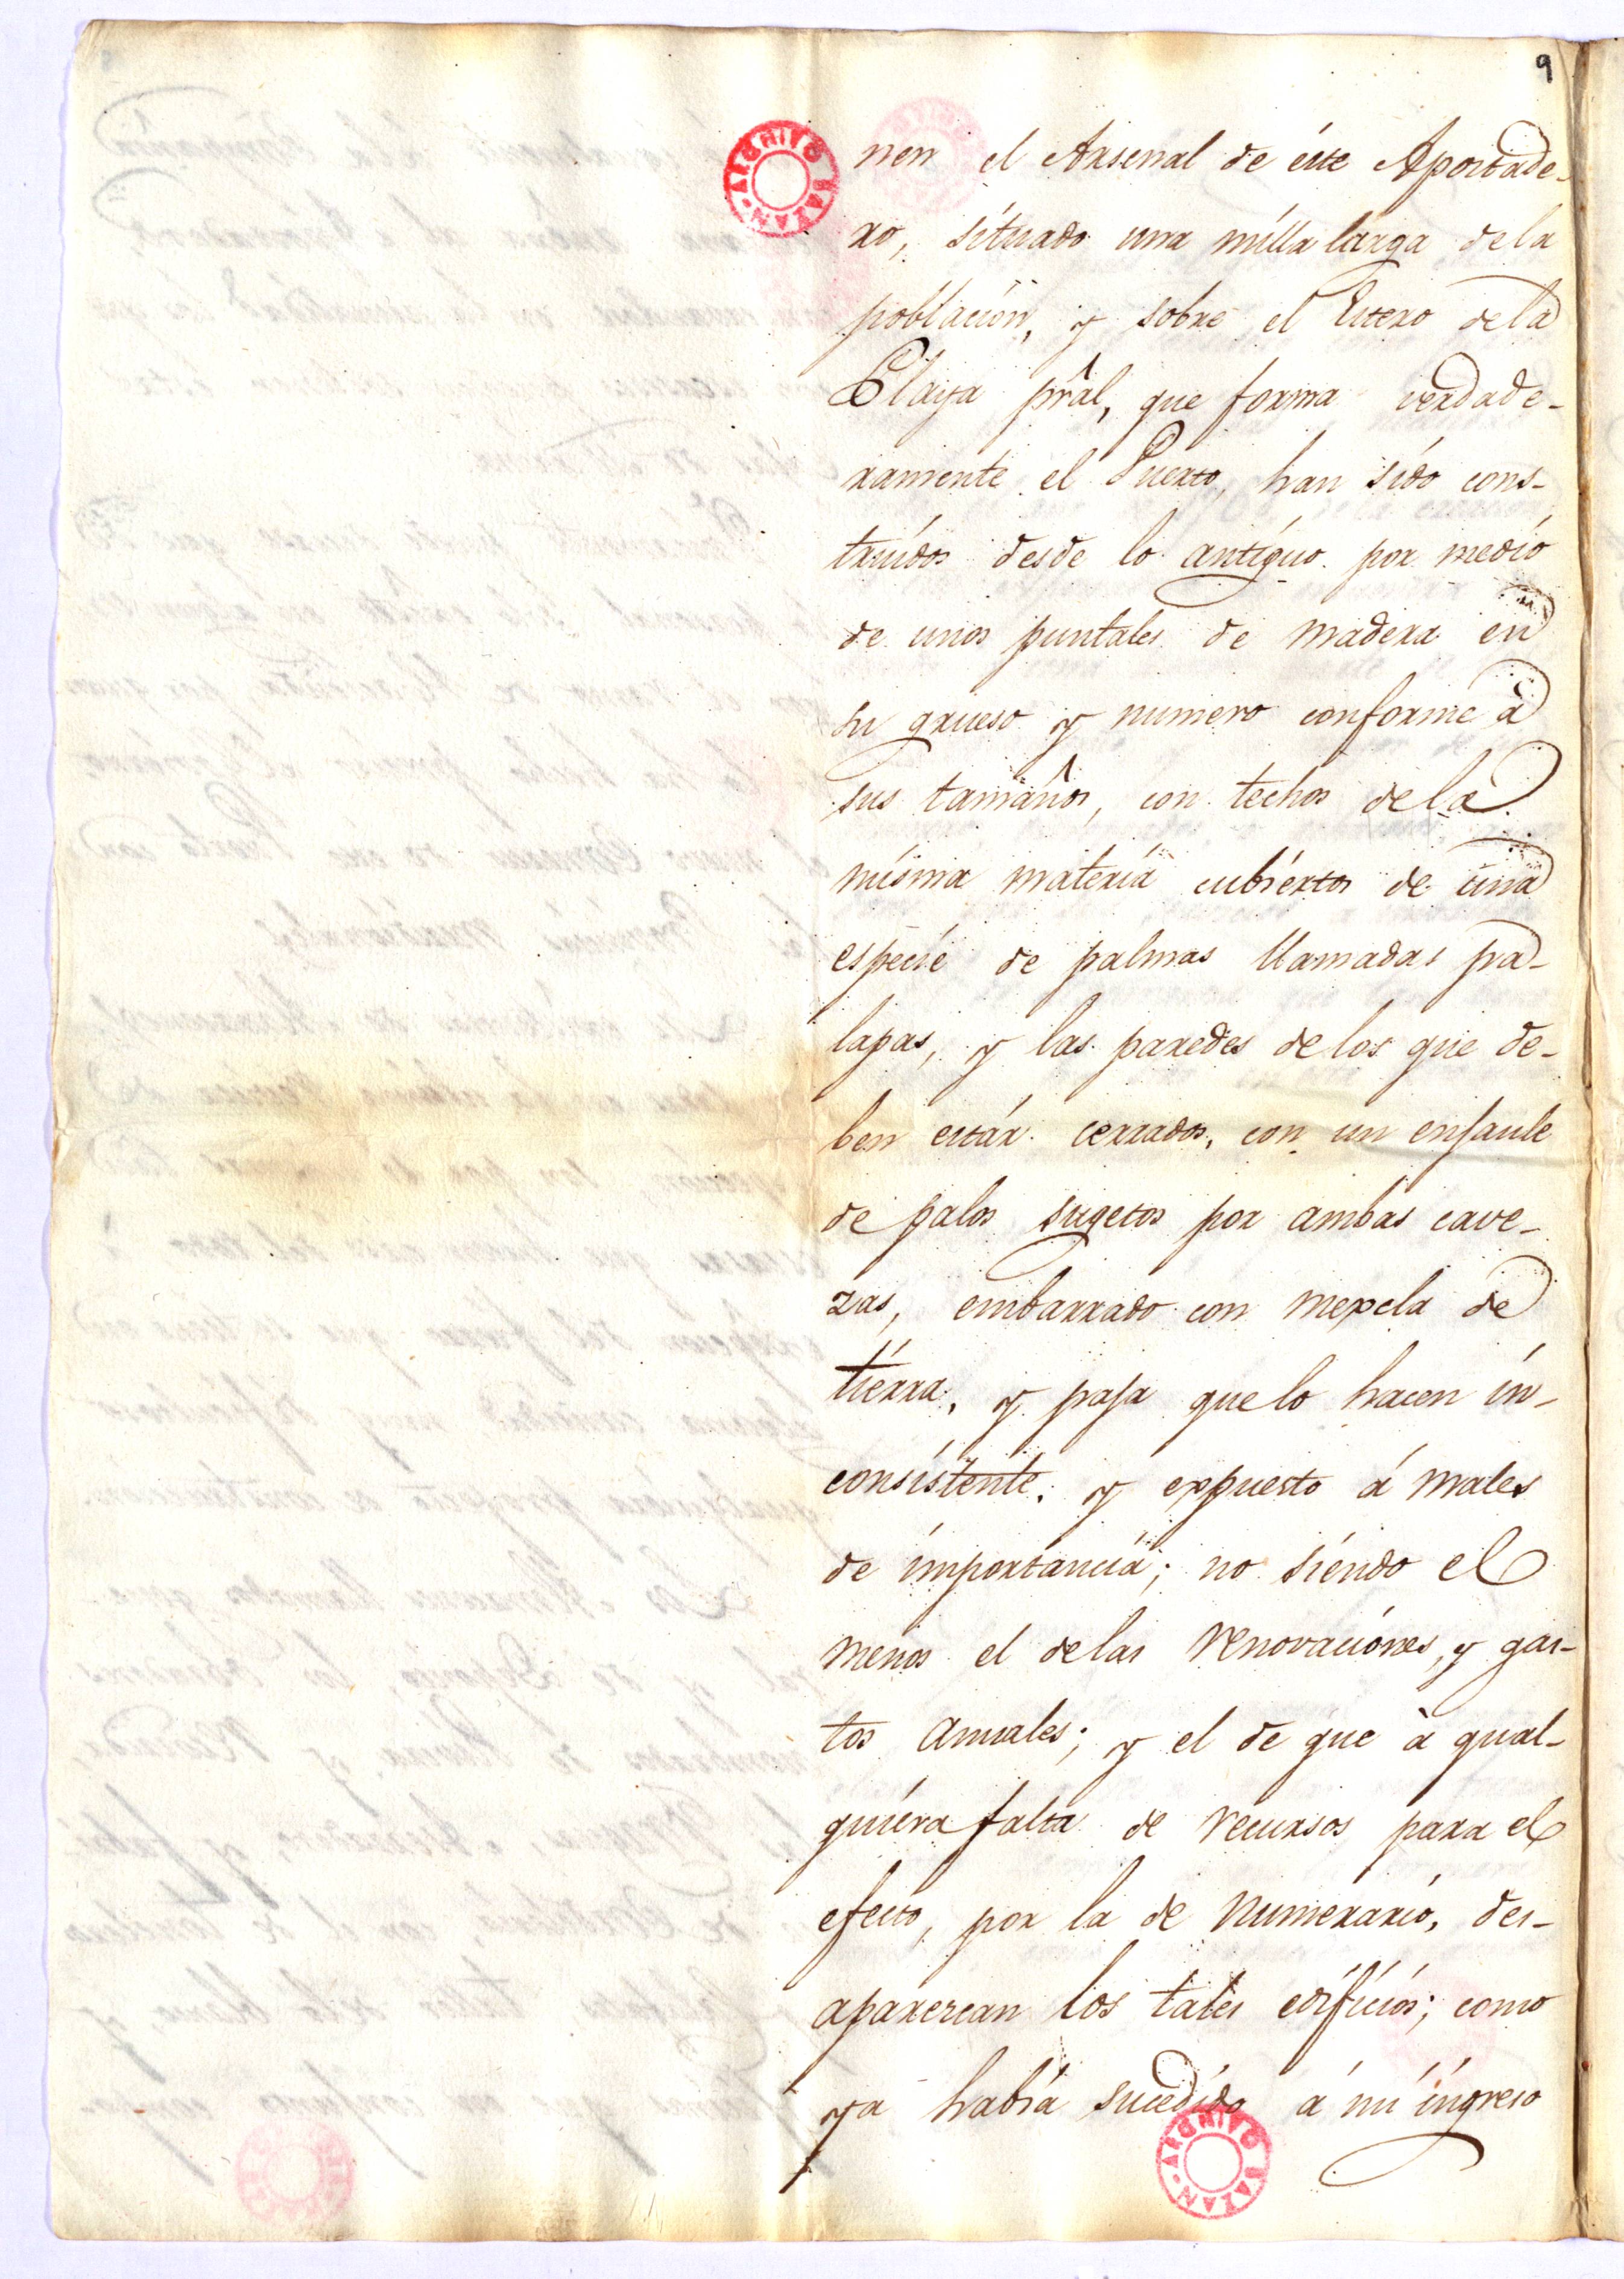 9
ARCHIVO BAZAN
nen el Arsenal de éste Apostade-
ro, situado una milla larga dela
población, y sobre el Estero dela
Playa pral, que forma verdade-
ramente el Puerto, han sido cons-
truidos desde lo antiguo por medio
de unos puntales de madera en
su grueso y numero conforme à
sus tamaños, con techos dela
misma materia cubiertos de una
especie de palmas llamadas pa-
lapas, y las paredes delos que de-
ben estár cerrados, con un enjaule
de palos sugetos por ambas cave-
zas, embarrado con mezcla de
tierra, y paja quelo hacen in-
consistente, y expuesto á males
de importancia; no siendo el
menos el delas renovaciones, y gas-
tos anuales; y el de que à qual-
quiera falta de recursos para el
efecto, por la de numerario, des-
aparezcan los tales edificios; como
ya habia sucedido á mi ingreso
ARCHIVO BAZAN